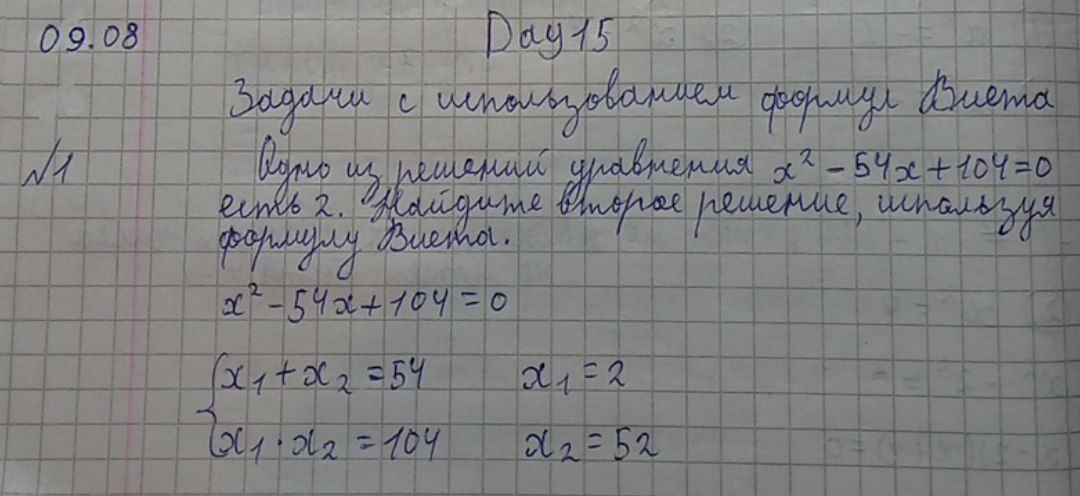 09.08 Day 15
Задачи с использованием формул Виета
№1 Одно из решений уравнения x² - 54x + 104 = 0
есть 2. Найдите второе решение, используя
формулу Виета.
x² - 54x + 104 = 0
{ x₁ + x₂ = 54 x₁ = 2
x₁ · x₂ = 104 x₂ = 52